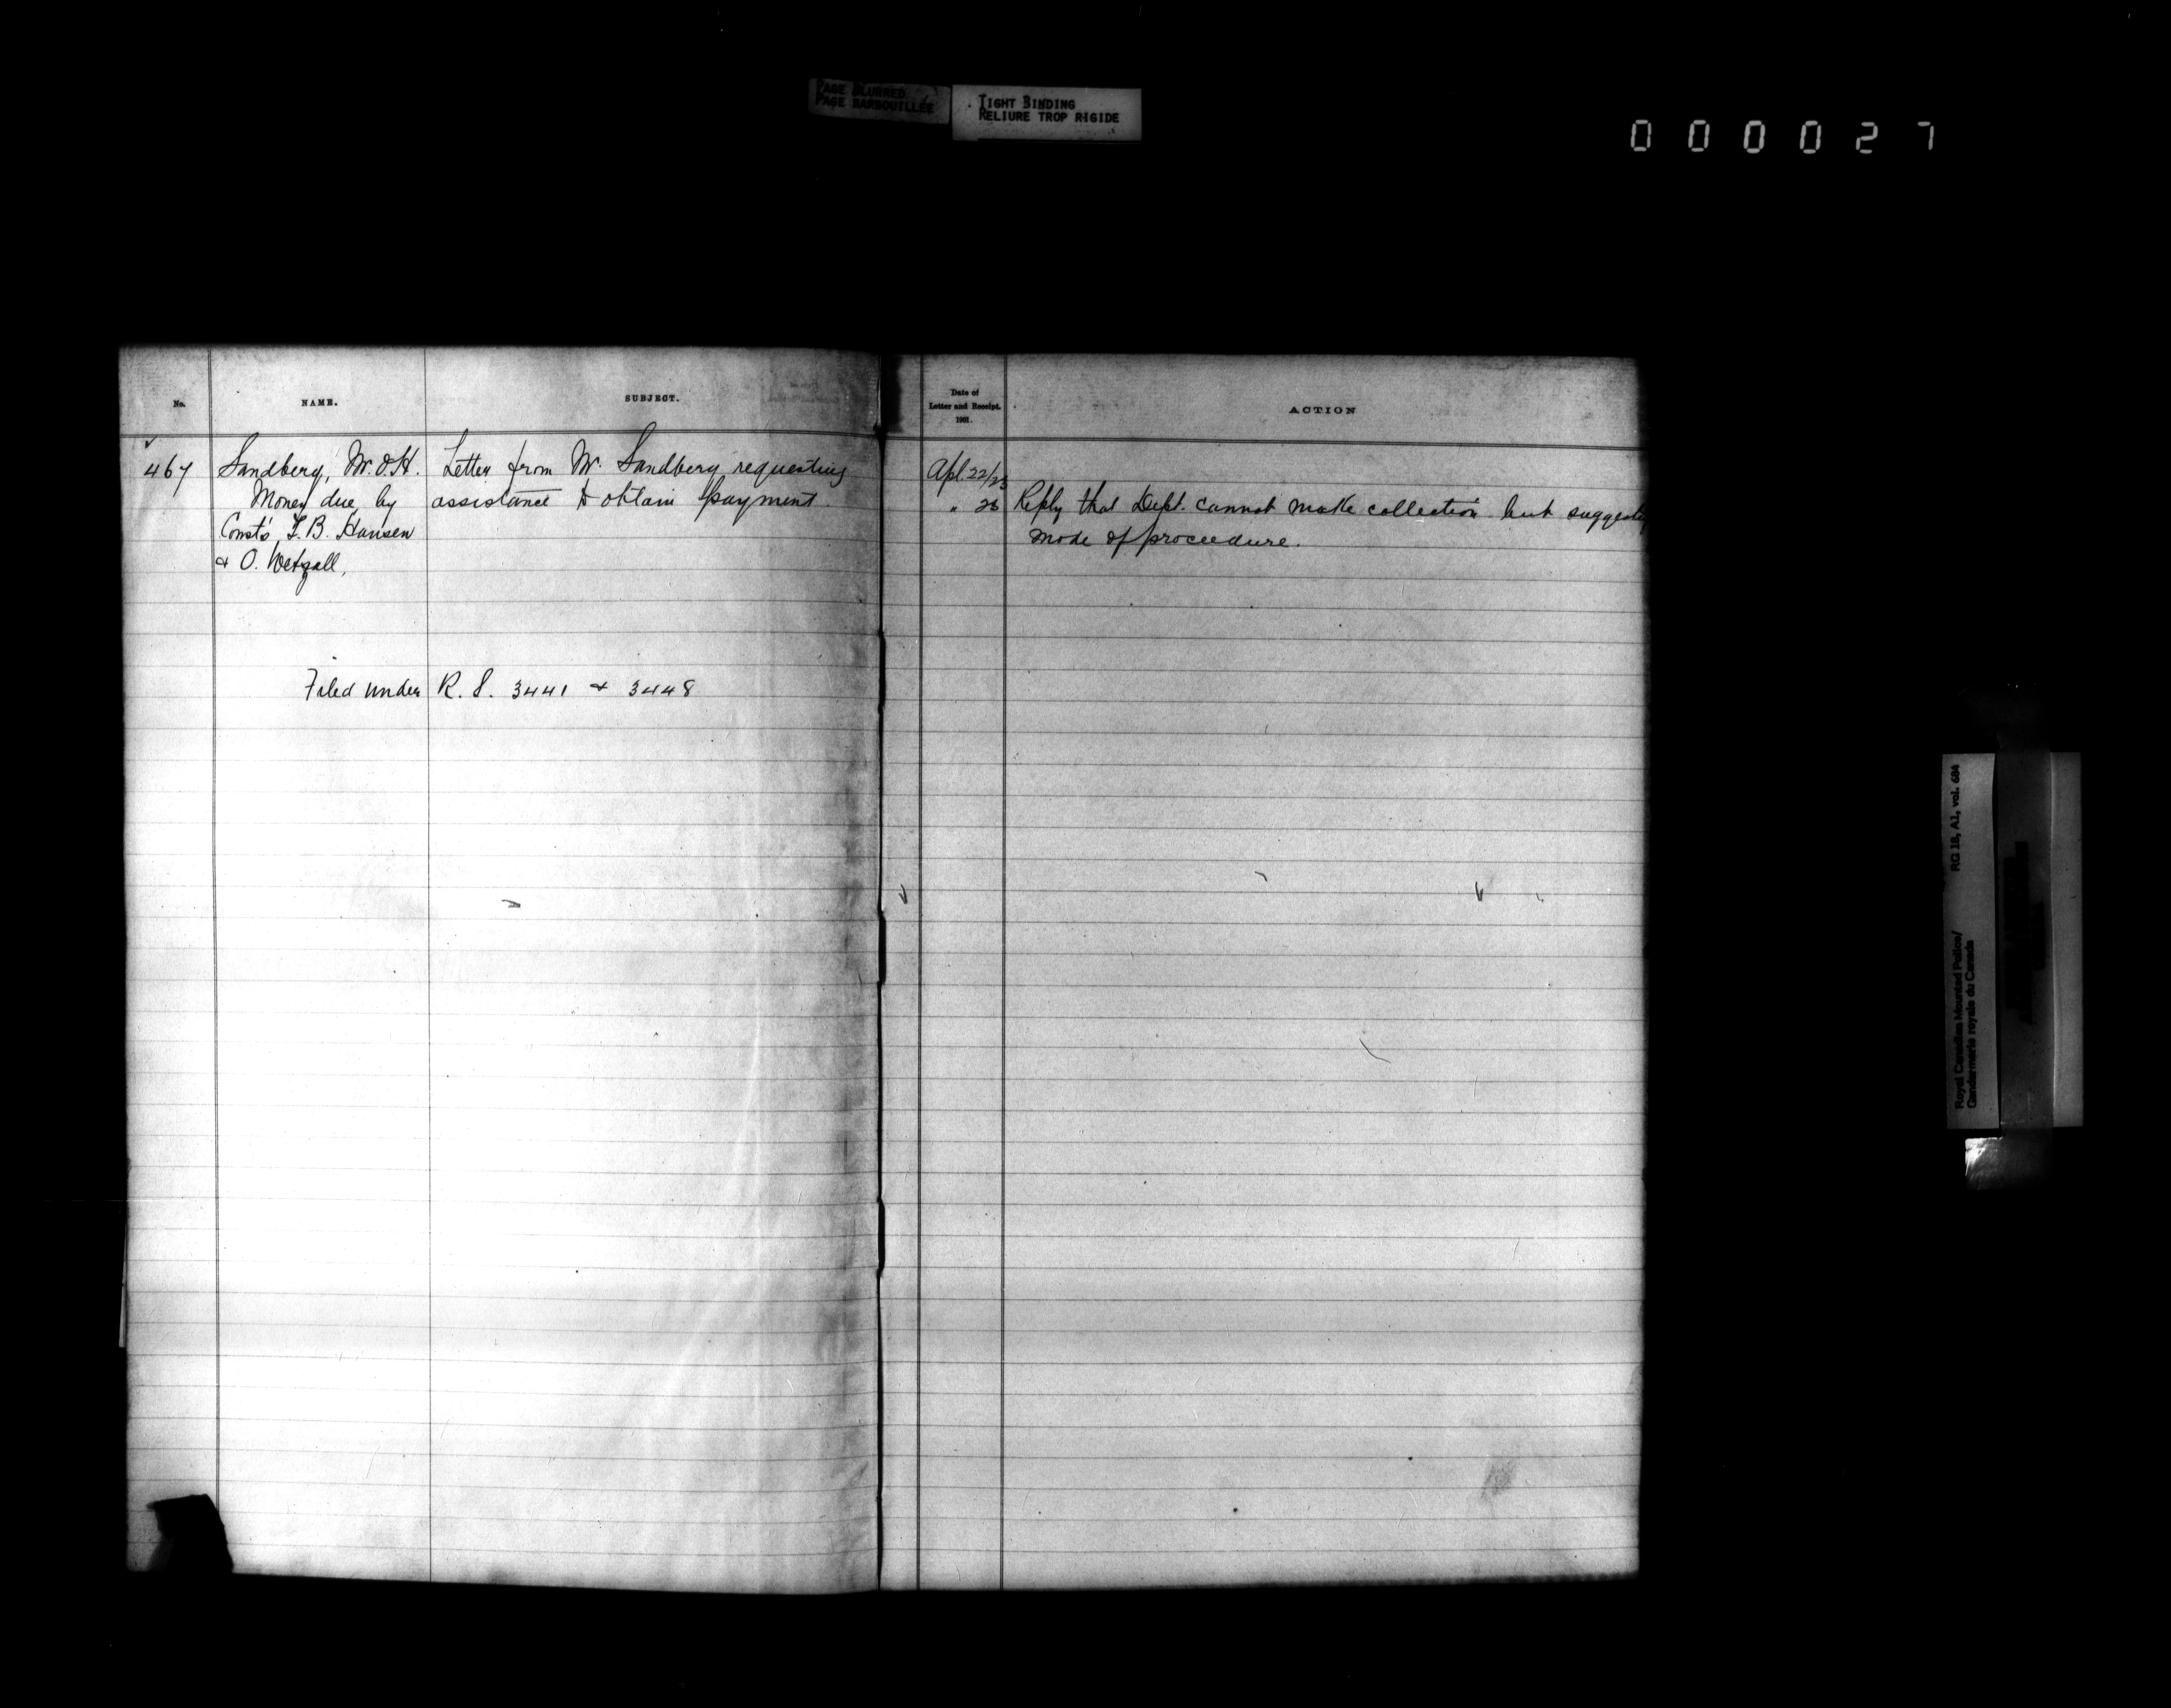 PAGE BLURRED
PAGE BARBOUILLÉE
TIGHT BINDING
RELIURE TROP RIGIDE
000027
No.
NAME.
SUBJECT.
Date of
Letter and Receipt.
1901.
ACTION
467 Sandberg, M.O.H. Letter from Mr. Sandberg requesting Apl. 22/25
Money due by assistance to obtain payment. " 26 Reply that Dept. cannot make collection but suggesting
Const's L.B. Hansen mode of proceedure.
& O. Wetzall,
Filed under R. S. 3441 & 3448
Royal Canadian Mounted Police/ RG 18, A1, vol. 684
Gendarmerie royale du Canada